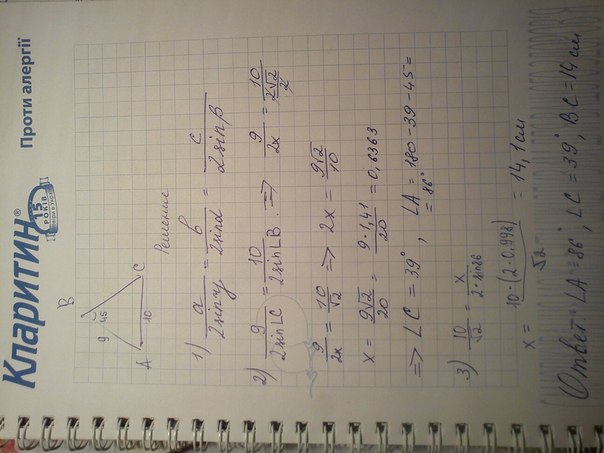 Кларитин®
15
РОКІВ
Проти алергії
B
9 45
A 10 C
Решение
1) a/2sinγ = b/2sinα = c/2sinβ
2) 9/2sin∠C = 10/2sin∠B. => 9/2x = 10/(2√2/2)
9/2x = 10/√2 => 2x = 9√2/10
x = 9√2/20 = 9·1,41/20 = 0,6363
=> ∠C = 39°, ∠A = 180-39-45=
= 86°
3) 10/√2 = x/2·sin86
x = 10·(2·0.998)/√2 = 14,1 см
Ответ: ∠A = 86°, ∠C = 39°, BC = 14 см